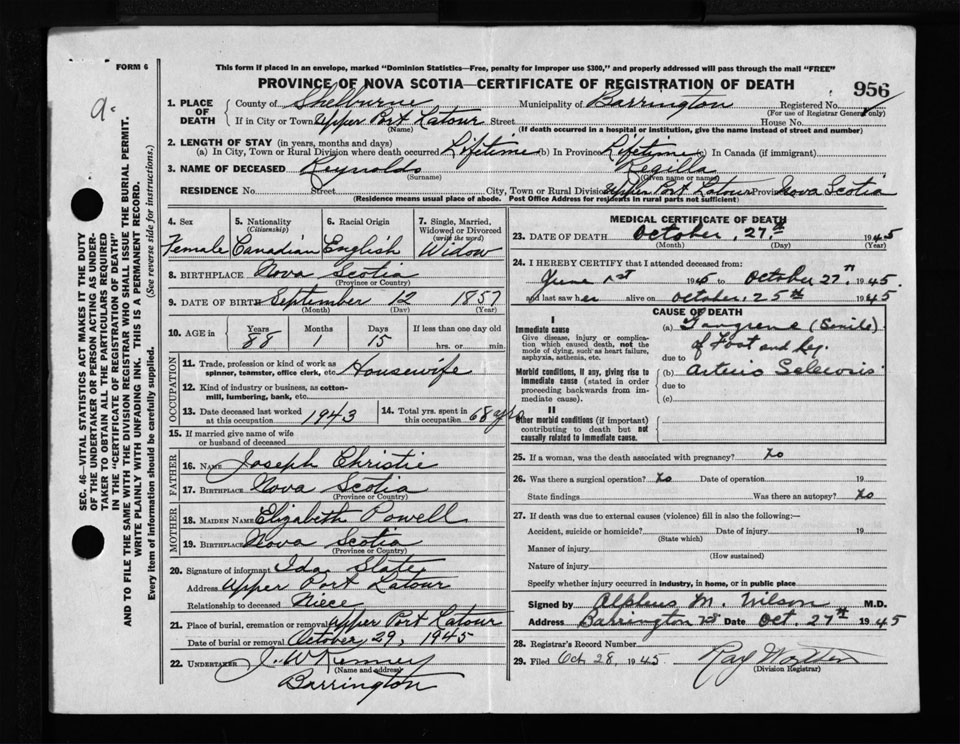 FORM 6
This form if placed in an envelope, marked "Dominion Statistics—Free, penalty for improper use $300," and properly addressed will pass through the mail "FREE"
PROVINCE OF NOVA SCOTIA—CERTIFICATE OF REGISTRATION OF DEATH
956
1. PLACE OF DEATH
County of Shelburne Municipality of Barrington Registered No.
(For use of Registrar General only)
If in City or Town Upper Port Latour Street House No.
(Name) (If death occurred in a hospital or institution, give the name instead of street and number)
2. LENGTH OF STAY (in years, months and days)
(a) In City, Town or Rural Division where death occurred Lifetime (b) In Province Lifetime (c) In Canada (if immigrant)
3. NAME OF DECEASED Reynolds Regilla
(Surname) (Given name or names)
RESIDENCE No. Street City, Town or Rural Division Upper Port Latour Province Nova Scotia
(Residence means usual place of abode. Post Office Address for residents in rural parts not sufficient)
4. Sex 5. Nationality (Citizenship) 6. Racial Origin 7. Single, Married, Widowed or Divorced (write the word)
Female Canadian English Widow
8. BIRTHPLACE Nova Scotia
(Province or Country)
9. DATE OF BIRTH September 12 1857
(Month) (Day) (Year)
10. AGE in Years Months Days If less than one day old
88 1 15 hrs. or min.
OCCUPATION
11. Trade, profession or kind of work as spinner, teamster, office clerk, etc. Housewife
12. Kind of industry or business, as cotton-mill, lumbering, bank, etc.
13. Date deceased last worked at this occupation 1943 14. Total yrs. spent in this occupation 68 yrs
15. If married give name of wife or husband of deceased
FATHER
16. NAME Joseph Christie
17. BIRTHPLACE Nova Scotia
(Province or Country)
MOTHER
18. MAIDEN NAME Elizabeth Powell
19. BIRTHPLACE Nova Scotia
(Province or Country)
20. Signature of informant Ida Slate
Address Upper Port Latour
Relationship to deceased Niece
21. Place of burial, cremation or removal Upper Port Latour
Date of burial or removal October 29, 1945
22. UNDERTAKER J. W Kenney
(Name and address)
Barrington
MEDICAL CERTIFICATE OF DEATH
23. DATE OF DEATH October, 27th 1945
(Month) (Day) (Year)
24. I HEREBY CERTIFY that I attended deceased from:
June 1st 1945 to October 27th, 1945
and last saw her alive on October, 25th 1945
CAUSE OF DEATH
I
Immediate cause
Give disease, injury or complication which caused death, not the mode of dying, such as heart failure, asphyxia, asthenia, etc.
(a) Gangrene (Senile)
of Foot and Leg.
due to
Morbid conditions, if any, giving rise to immediate cause (stated in order proceeding backwards from immediate cause).
(b) Arterio Sclerosis
due to
(c)
II
Other morbid conditions (if important) contributing to death but not causally related to immediate cause.
25. If a woman, was the death associated with pregnancy? No
26. Was there a surgical operation? No Date of operation 19
State findings Was there an autopsy? No
27. If death was due to external causes (violence) fill in also the following:—
Accident, suicide or homicide? Date of injury 19
(State which)
Manner of injury
(How sustained)
Nature of injury
Specify whether injury occurred in industry, in home, or in public place
Signed by Alpheus M. Wilson M.D.
Address Barrington NS Date Oct. 27th 1945
28. Registrar's Record Number
29. Filed Oct 28, 1945
(Division Registrar)
SEC. 46—VITAL STATISTICS ACT MAKES IT THE DUTY
OF THE UNDERTAKER OR PERSON ACTING AS UNDER-
TAKER TO OBTAIN ALL THE PARTICULARS REQUIRED
IN THE "CERTIFICATE OF REGISTRATION OF DEATH"
AND TO FILE THE SAME WITH THE DIVISION REGISTRAR WHO SHALL ISSUE THE BURIAL PERMIT.
WRITE PLAINLY WITH UNFADING INK. THIS IS A PERMANENT RECORD.
Every item of information should be carefully supplied. (See reverse side for instructions.)